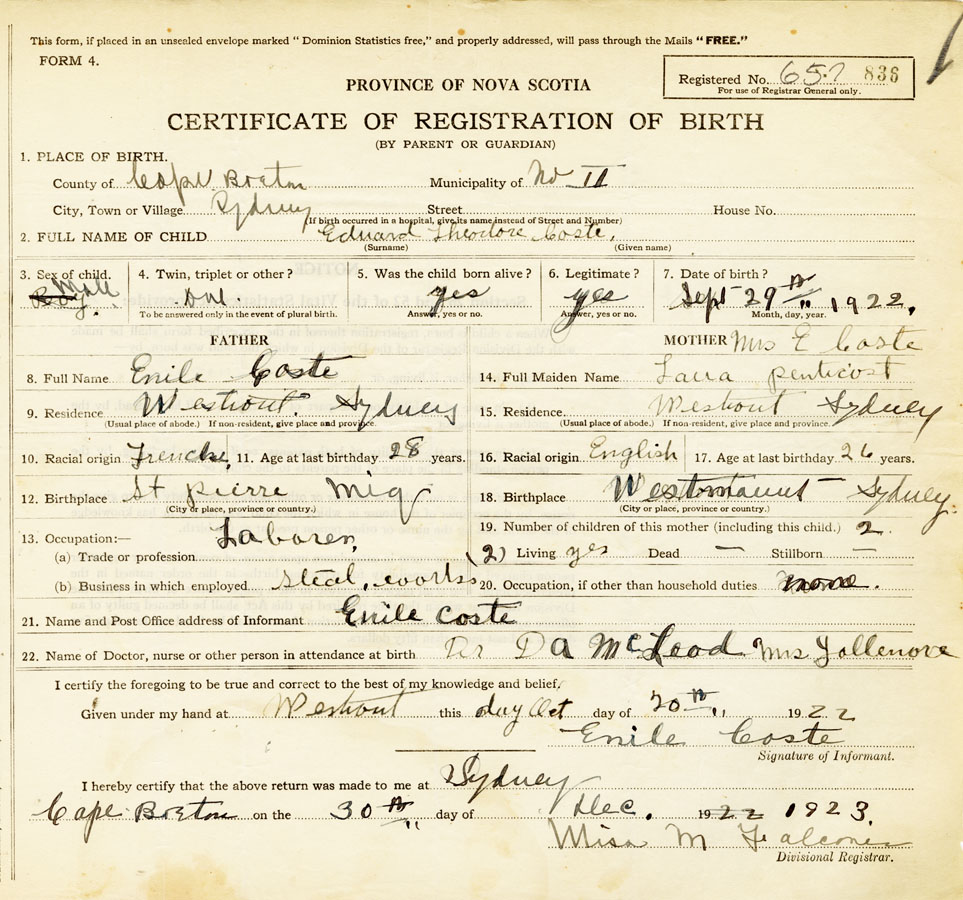 This form, if placed in an unsealed envelope marked “ Dominion Statistics free,” and properly addressed, will pass through the Mails “FREE.”
FORM 4.
Registered No. 657 836
For use of Registrar General only.
PROVINCE OF NOVA SCOTIA
CERTIFICATE OF REGISTRATION OF BIRTH
(BY PARENT OR GUARDIAN)
1. PLACE OF BIRTH.
County of Cape Breton Municipality of No II
City, Town or Village Sydney Street House No.
(If birth occurred in a hospital, give its name instead of Street and Number)
2. FULL NAME OF CHILD Eduard Theodore Coste,
(Surname) (Given name)
3. Sex of child. 4. Twin, triplet or other? 5. Was the child born alive? 6. Legitimate? 7. Date of birth?
Boy. Male yes yes Sept 29th 1922.
To be answered only in the event of plural birth. Answer, yes or no. Answer, yes or no. Month, day, year.
FATHER MOTHER Mrs E Coste
8. Full Name Emile Coste 14. Full Maiden Name Laura penticost
9. Residence Westmout. Sydney 15. Residence. Westmout Sydney
(Usual place of abode.) If non-resident, give place and province. (Usual place of abode.) If non-resident, give place and province.
10. Racial origin French. 11. Age at last birthday 28 years. 16. Racial origin English 17. Age at last birthday 26 years.
12. Birthplace St pierre Miq 18. Birthplace Westmount Sydney.
(City or place, province or country.) (City or place, province or country.)
13. Occupation:— Laborer, 19. Number of children of this mother (including this child.) 2.
(a) Trade or profession (2) Living yes Dead — Stillborn —
(b) Business in which employed steal works 20. Occupation, if other than household duties none.
21. Name and Post Office address of Informant Emile Coste
22. Name of Doctor, nurse or other person in attendance at birth Dr D A McLeod Mrs
I certify the foregoing to be true and correct to the best of my knowledge and belief.
Given under my hand at Westmout this day Oct day of 20th 1922
Emile Coste
Signature of Informant.
I hereby certify that the above return was made to me at Sydney
Cape Breton on the 30th day of Dec. 1922 1923.
Miss M Falconer
Divisional Registrar.